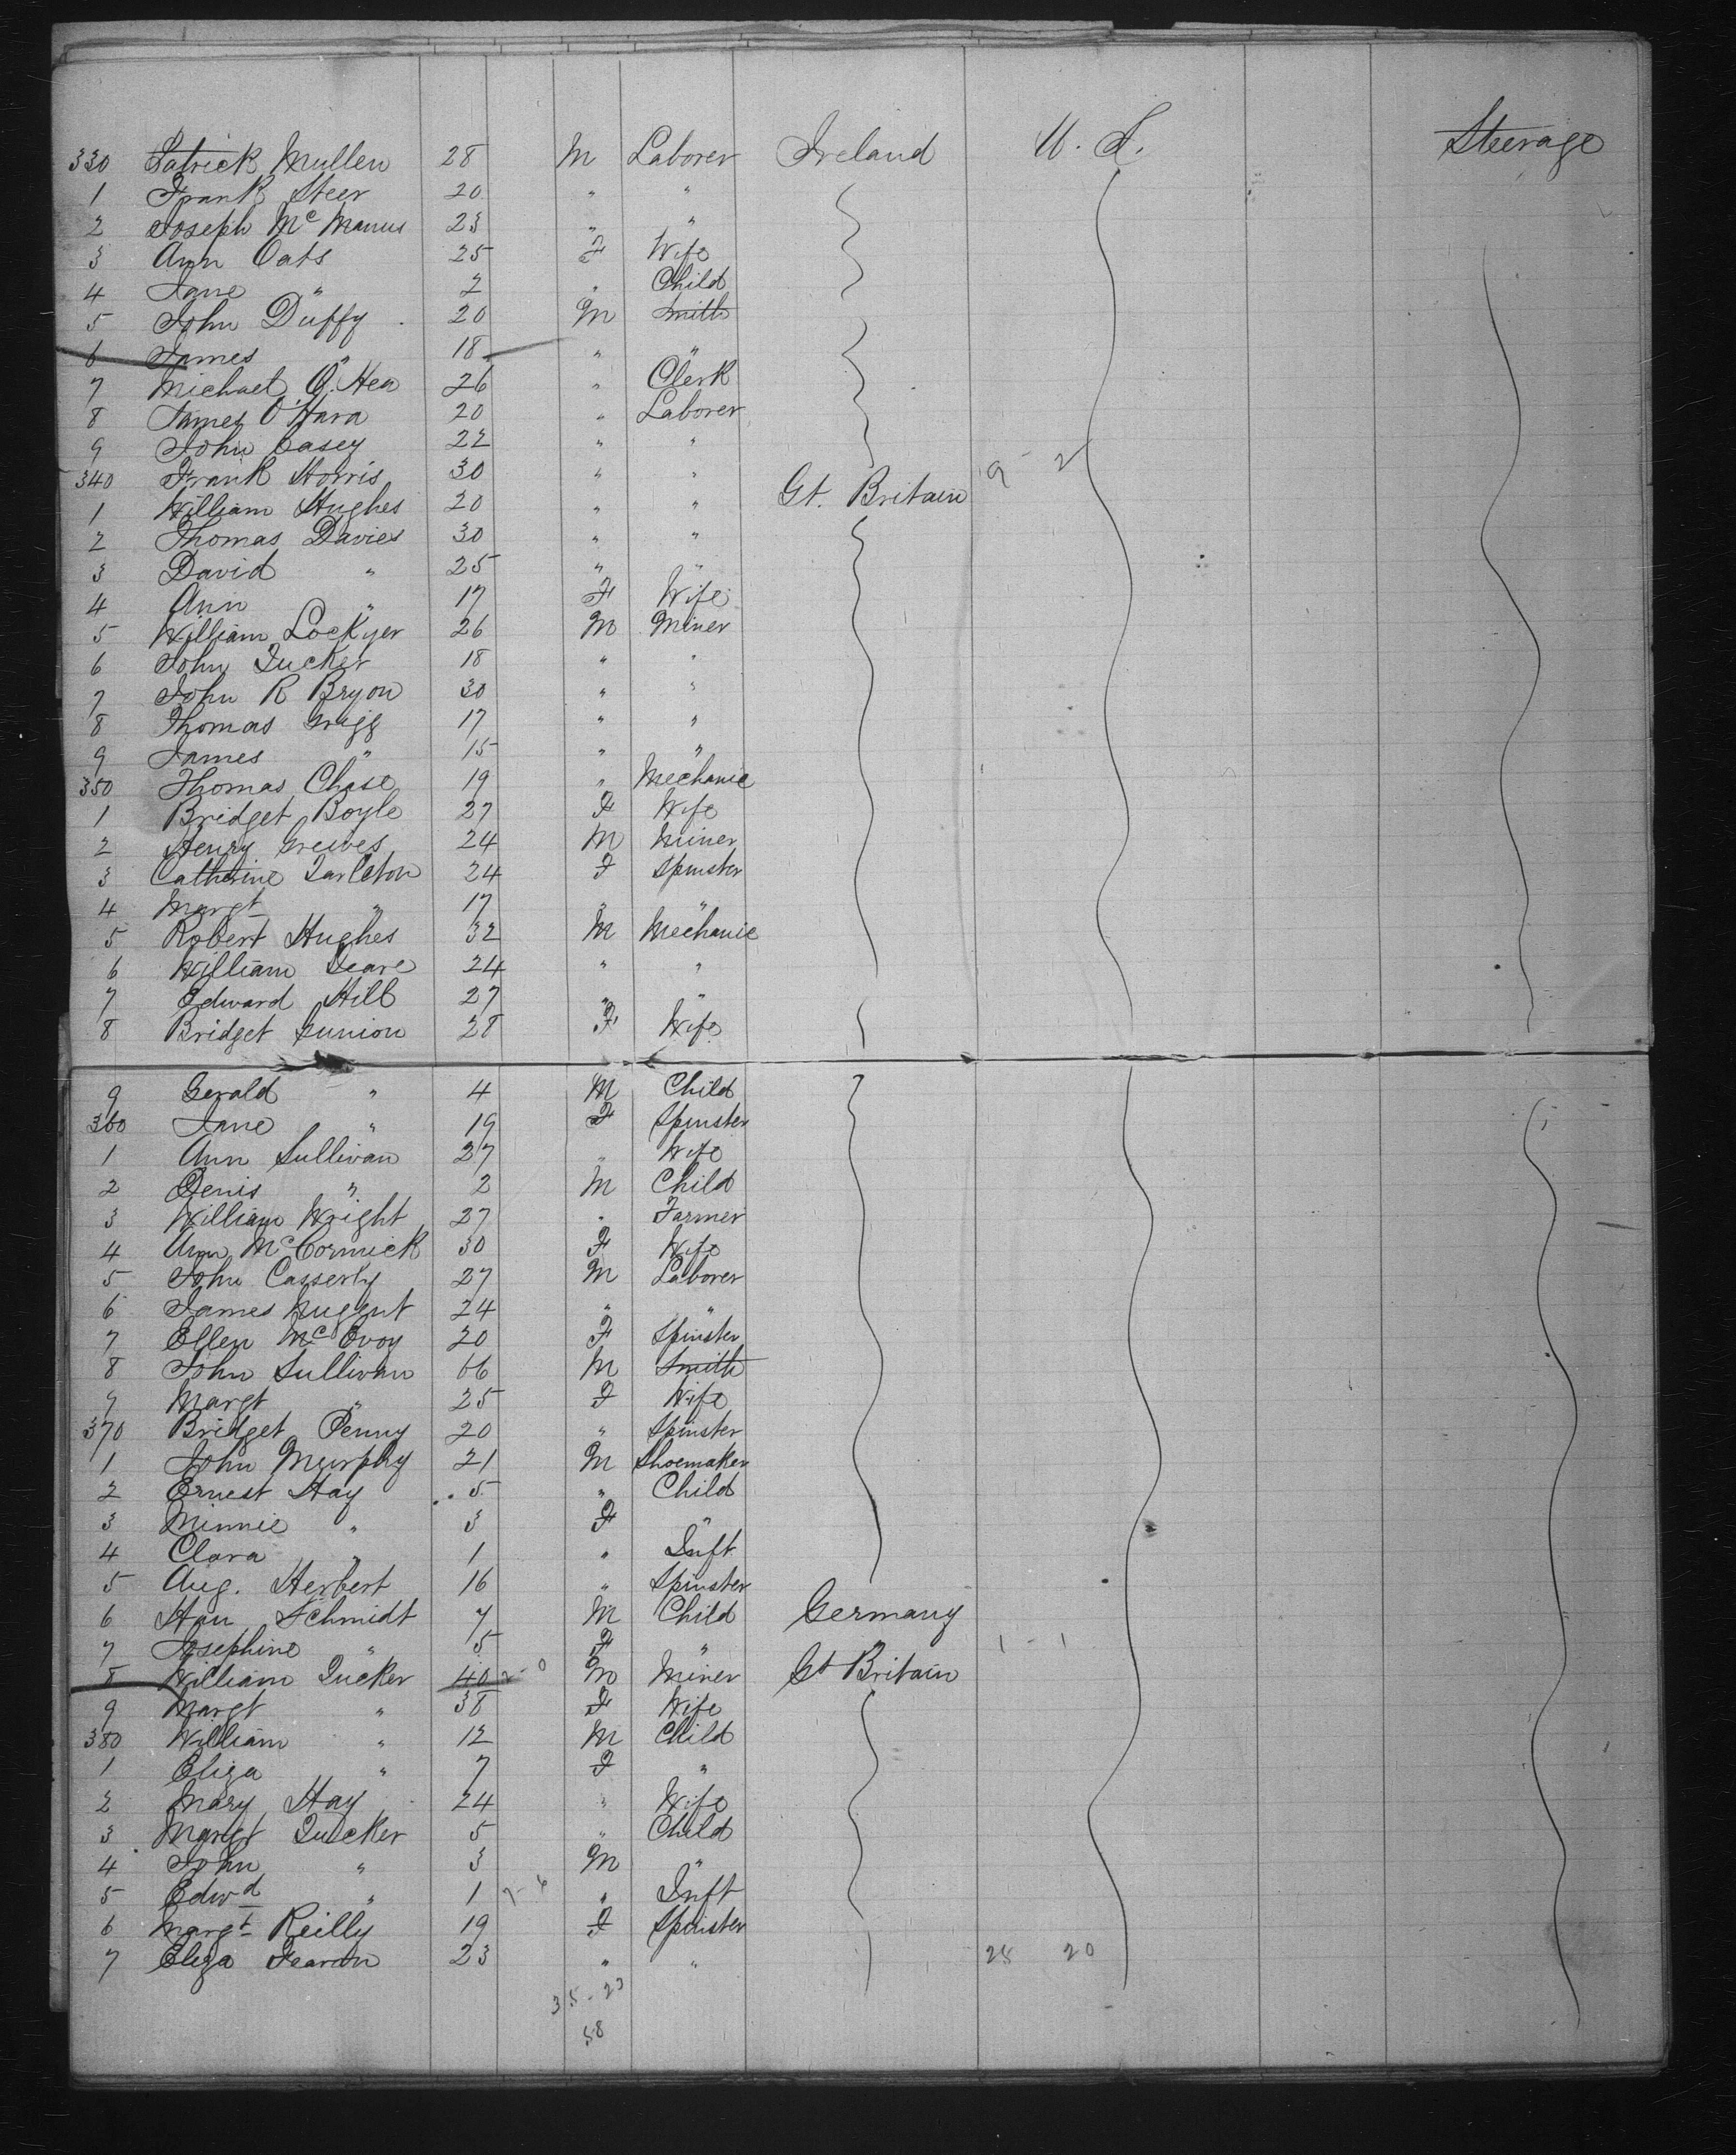 330 Patrick Mullen 28 M Laborer Ireland U. S. Steerage
1 Frank Steer 20 " "
2 Joseph McManus 23 " "
3 Ann Oats 25 F Wife
4 Jane " 2 " Child
5 John Duffy 20 M Smith
6 James " 18 " "
7 Michael O'Hea 26 " Clerk
8 James O'Hara 20 " Laborer
9 John Casey 22 " "
340 Frank Morris 30 " " 9 - 2
1 William Hughes 20 " " Gt. Britain
2 Thomas Davies 30 " "
3 David " 25 " "
4 Ann " 17 F Wife
5 William Lockyer 26 M Miner
6 John Tucker 18 " "
7 John R Bryon 30 " "
8 Thomas Grigg 17 " "
9 James " 15 " "
350 Thomas Chase 19 " Mechanic
1 Bridget Boyle 27 F Wife
2 Henry Greeves 24 M Miner
3 Catherine Tarleton 24 F Spinster
4 Margt " 17 " "
5 Robert Hughes 32 M Mechanic
6 William 24 " "
7 Edward Hill 27 " "
8 Bridget Gunion 28 F Wife
9 Gerald " 4 M Child
360 Jane " 19 F Spinster
1 Ann Sullivan 27 " Wife
2 Denis " 2 M Child
3 William Wright 27 " Farmer
4 Ann McCormick 30 F Wife
5 John Casserly 27 M Laborer
6 James Nugent 24 " "
7 Ellen McEvoy 20 F Spinster
8 John Sullivan 66 M Smith
9 Margt " 25 F Wife
370 Bridget Penny 20 " Spinster
1 John Murphy 21 M Shoemaker
2 Ernest Hay 5 " Child
3 Minnie " 3 F "
4 Clara " 1 " Inft
5 Aug. Herbert 16 " Spinster
6 Han Schmidt 7 M Child Germany
7 Josephine " 5 F " " 1 - 1
8 William Tucker 40 2-0 M Miner Gt Britain
9 Margt " 38 F Wife
380 William " 12 M Child
1 Eliza " 7 F "
2 Mary Hay 24 " Wife
3 Margt Tucker 5 " Child
4 John " 3 M "
5 Edwd " 1 7-6 " Inft
6 Margt Reilly 19 F Spinster
7 Eliza 23 " " 25 20
35-23
58